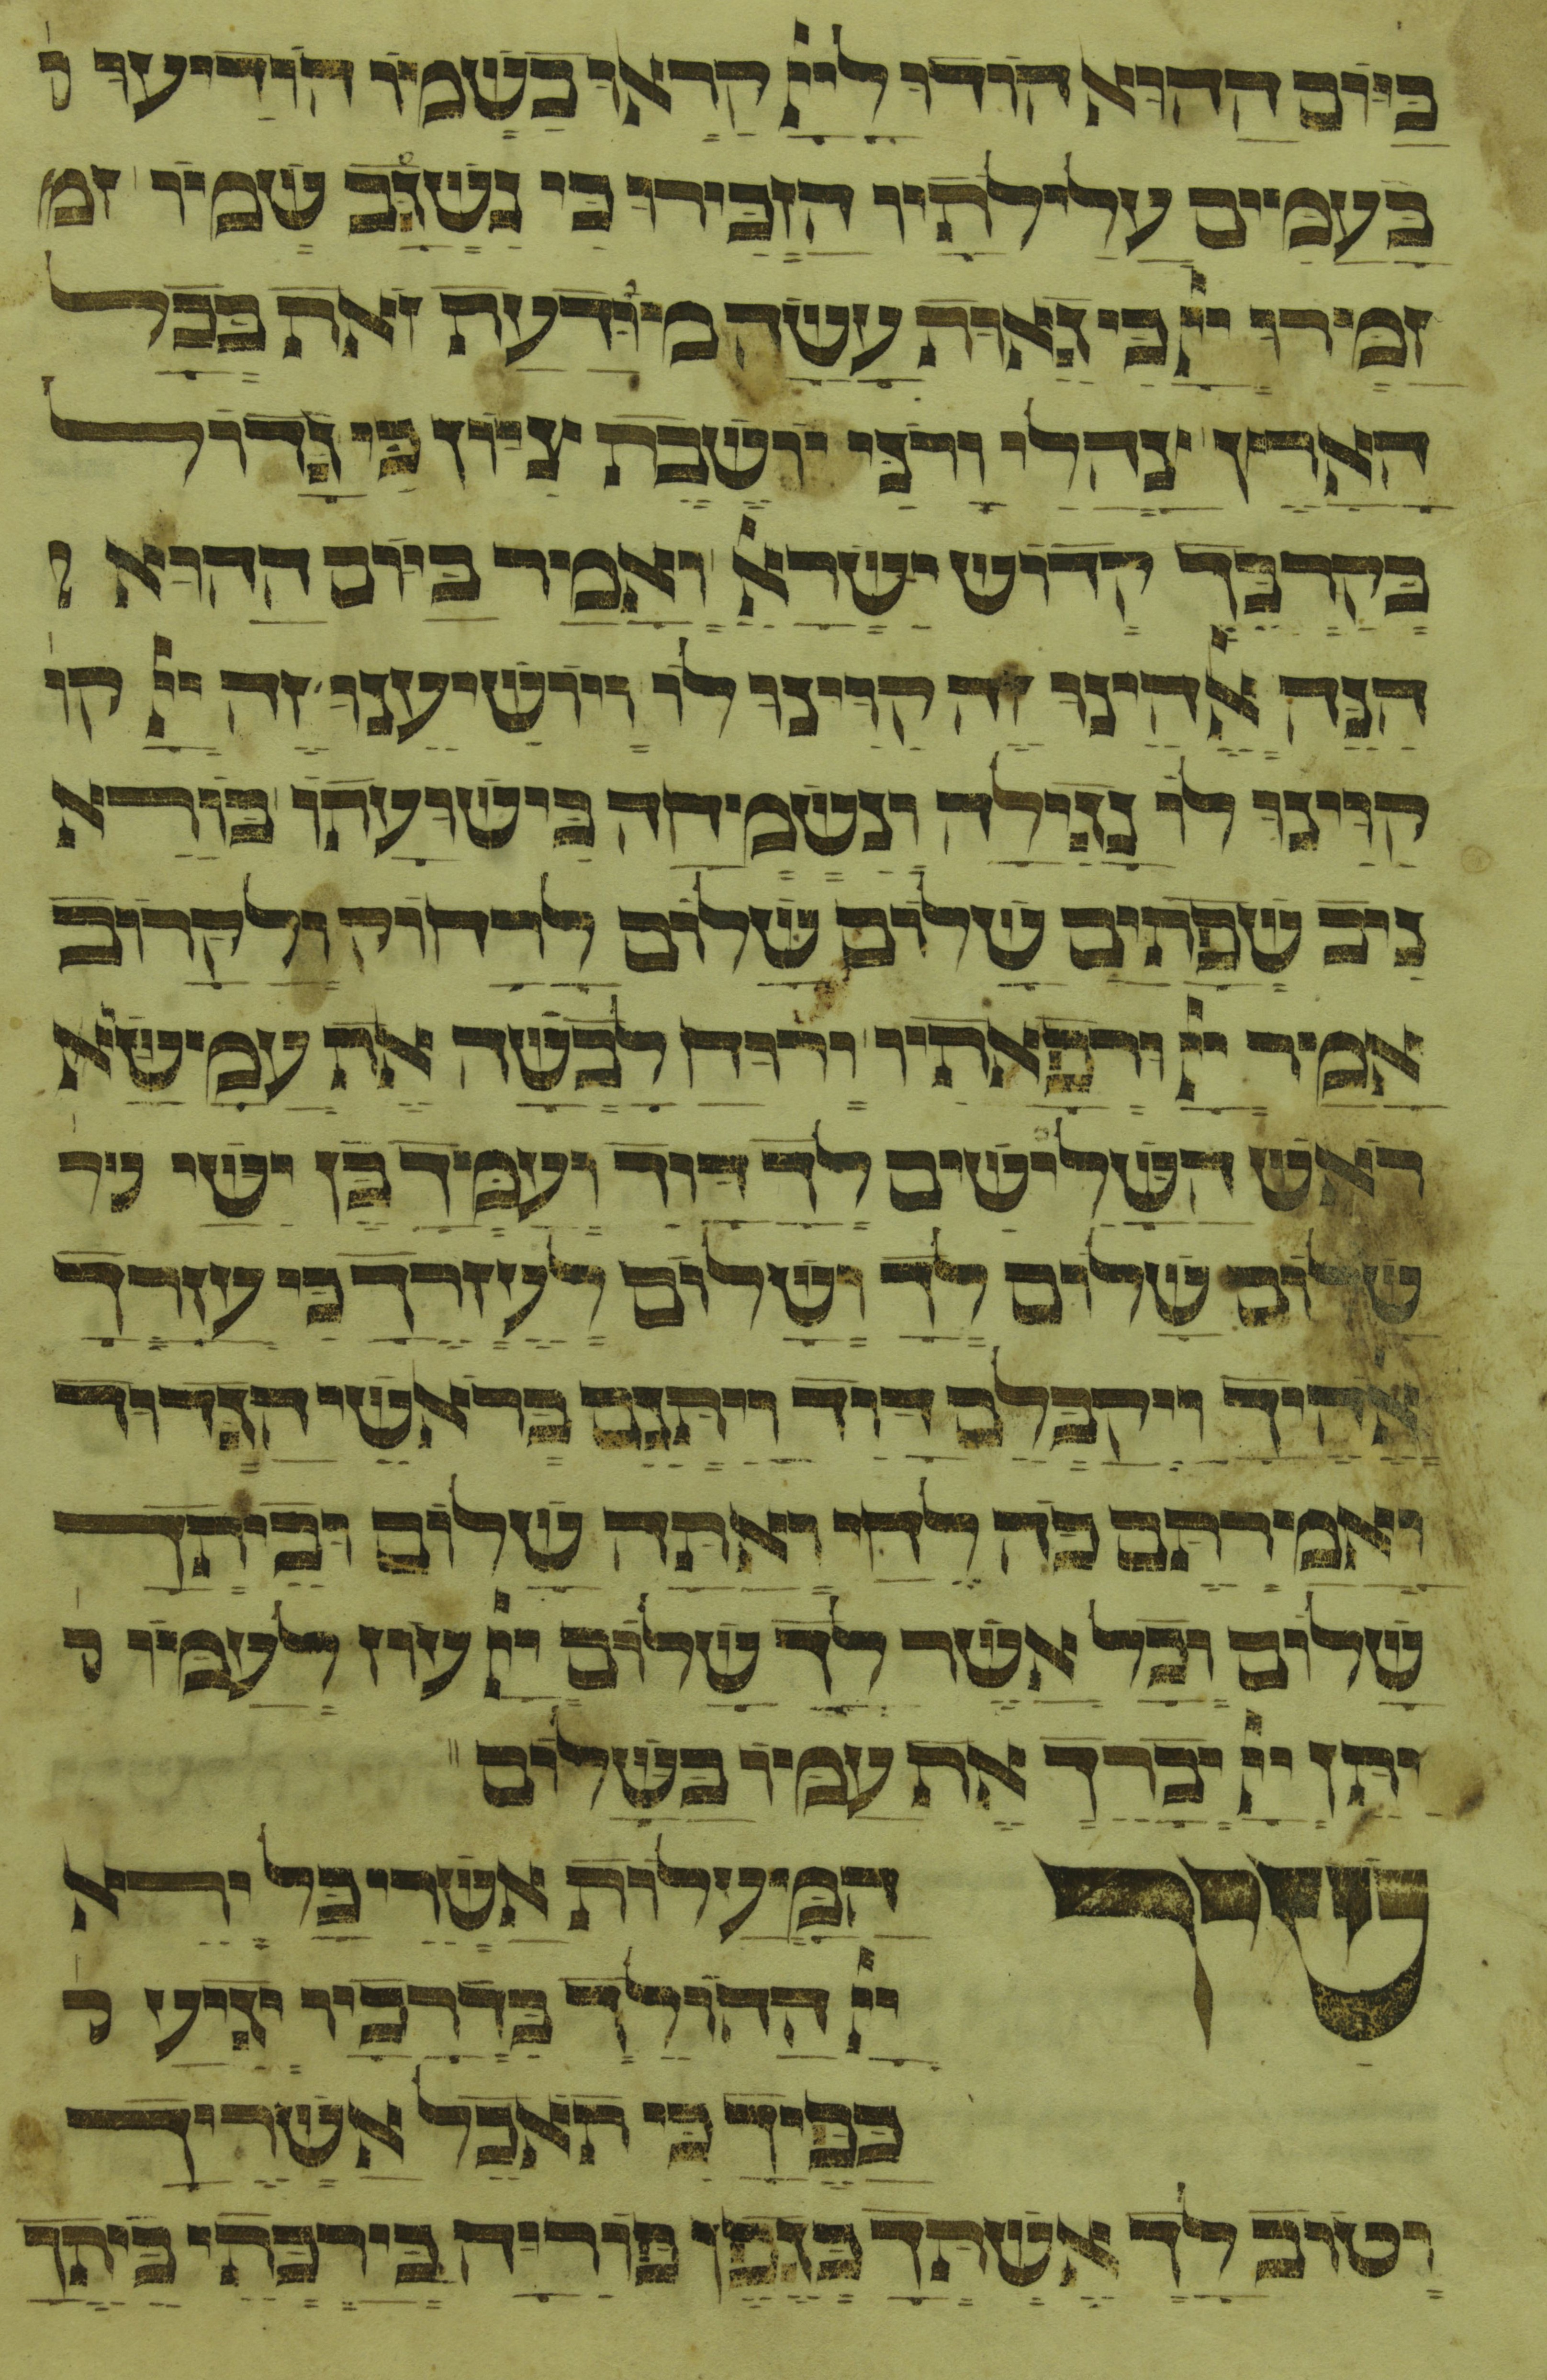 בַּיּוֹם הַהוּא הוֹדוּ לַיְיָ קִרְאוּ בִשְׁמוֹ הוֹדִיעוּ
בָעַמִּים עֲלִילֹתָיו הַזְכִּירוּ כִּי נִשְׂגָּב שְׁמוֹ זמ
זַמְּרוּ יְיָ כִּי גֵאוּת עָשָׂה מְיֻדַּעַת זֹאת בְּכָל
הָאָרֶץ צַהֲלִי וָרֹנִּי יוֹשֶׁבֶת צִיּוֹן כִּי גָדוֹל
בְּקִרְבֵּךְ קְדוֹשׁ יִשְׂרָאֵל וְאָמַר בַּיּוֹם הַהוּא
הִנֵּה אֱלֹהֵינוּ זֶה קִוִּינוּ לוֹ וְיוֹשִׁיעֵנוּ זֶה יְיָ קו
קִוִּינוּ לוֹ נָגִילָה וְנִשְׂמְחָה בִּישׁוּעָתוֹ בּוֹרֵא
נִיב שְׂפָתָיִם שָׁלוֹם שָׁלוֹם לָרָחוֹק וְלַקָּרוֹב
אָמַר יְיָ וּרְפָאתִיו וְרוּחַ לָבְשָׁה אֶת עֲמָשָׂא
רֹאשׁ הַשָּׁלִישִׁים לְךָ דָוִד וְעִמְּךָ בֶן יִשַׁי
שָׁלוֹם שָׁלוֹם לְךָ וְשָׁלוֹם לְעֹזְרֶךָ כִּי עֲזָרְךָ
אֱלֹהֶיךָ וַיְקַבְּלֵם דָּוִד וַיִּתְּנֵם בְּרָאשֵׁי הַגְּדוּד
וַאֲמַרְתֶּם כֹּה לֶחָי וְאַתָּה שָׁלוֹם וּבֵיתְךָ
שָׁלוֹם וְכֹל אֲשֶׁר לְךָ שָׁלוֹם יְיָ עוֹז לְעַמּוֹ
יִתֵּן יְיָ יְבָרֵךְ אֶת עַמּוֹ בַשָּׁלוֹם
שִׁיר הַמַּעֲלוֹת אַשְׁרֵי כָּל יְרֵא
יְיָ הַהוֹלֵךְ בִּדְרָכָיו יְגִיעַ
כַּפֶּיךָ כִּי תֹאכֵל אַשְׁרֶיךָ
וְטוֹב לָךְ אֶשְׁתְּךָ כְּגֶפֶן פּוֹרִיָּה בְּיַרְכְּתֵי בֵיתֶךָ